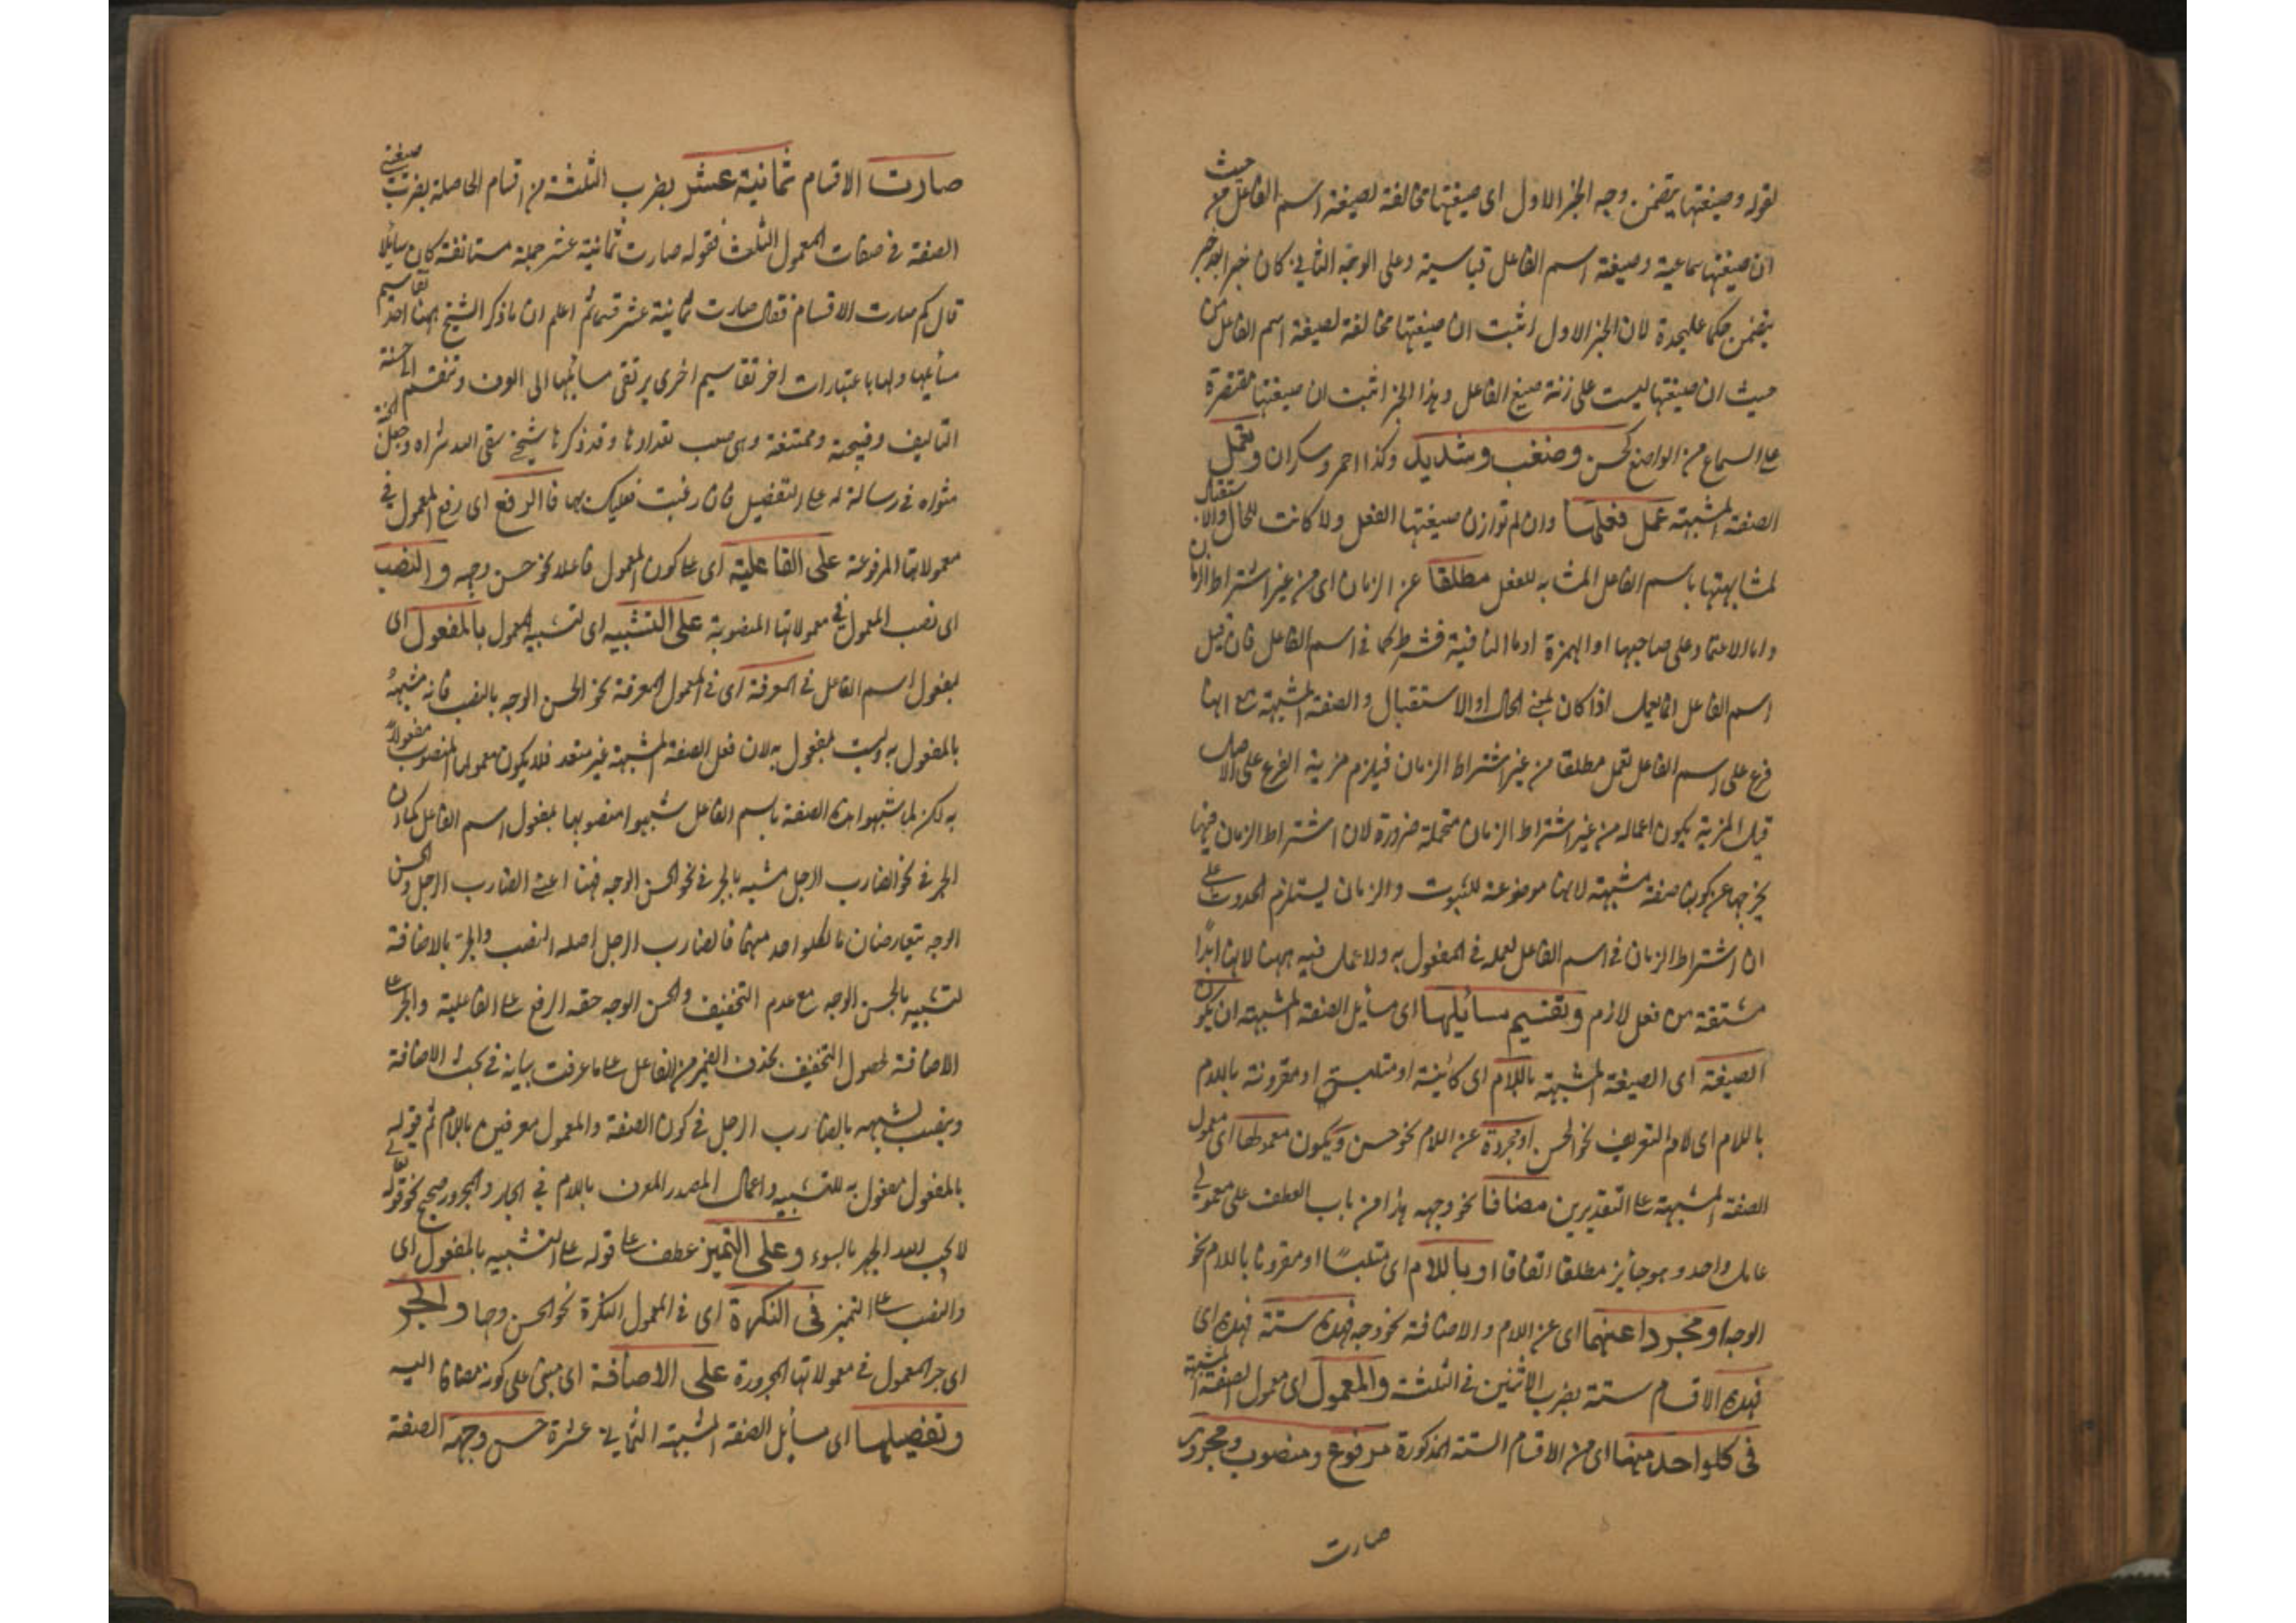 لقوله وصيغتها يتضمن وجه الجزء الاول اى صيغتها مخالفة لصيغة اسم الفاعل من حيث
ان صيغتها سماعية وصيغة اسم الفاعل قياسية وعلى الوجه الثانى كان خبرا بعد خبر
يتضمن حكما عليحدة لان الجزء الاول اثبت ان صيغتها مخالفة لصيغة اسم الفاعل من
حيث ان صيغتها ليست على زنة صيغ الفاعل وهذا الجزء اثبت ان صيغتها مقتصرة
على السماع من الواضع كحسن وصعب وشديد وكذا احمر وسكران وتعمل
الصفة المشبهة عمل فعلها وان لم توازن صيغتها الفعل ولا كانت للحال والاستقبال
لمشابهتها باسم الفاعل المشابه للفعل مطلقا عن الزمان اى من غير اشتراط الزمان
واما الاعتماد على صاحبها او الهمزة او ما النافية فشرط كما فى اسم الفاعل فان قيل
اسم الفاعل انما يعمل اذا كان بمعنى الحال او الاستقبال والصفة المشبهة مع انها
فرع على اسم الفاعل تعمل مطلقا من غير اشتراط الزمان فيلزم مزية الفرع على الاصل
قيل المزية بكون اعماله من غير اشتراط الزمان متحملة ضرورة لان اشتراط الزمان فيها
يخرجها عن كونها صفة مشبهة لانها موضوعة للثبوت والزمان يستلزم الحدوث على
ان اشتراط الزمان فى اسم الفاعل لعمله فى المفعول به ولا عمل فيه ههنا لانها ابدًا
مشتقة من فعل لازم وتقسيم مسائيلها اى مسائل الصفة المشبهة ان يكون
الصيغة اى الصيغة المشبهة باللام اى كائنة او متلبس او مقرونة باللام
باللام اى لام التعريف نحو الحسن او مجردة عن اللام نحو حسن ويكون معمولها اى معمول
الصفة المشبهة على التقديرين مضافا نحو وجهه هذا من باب العطف على معمولى
عامل واحد وهو جايز مطلقا اتفاقا او باللام اى متلبسًا او مقرونا باللام نحو
الوجه او مجردا عنهما اى عن اللام والاضافة نحو وجه فهذه ستة فهذه اى
فهذه الاقسام ستة بضرب الاثنين فى الثلثة والمعمول اى معمول الصفة المشبهة
فى كلواحد منها اى من الاقسام الستة المذكورة مرفوع ومنصوب ومجرور
صارت
صارت الاقسام ثمانية عشر بضرب الثلثة من اقسام الحاصلة بضرب صيغتى
الصفة فى صفات المعمول الثلث فقوله صارت ثمانية عشر جملة مستانفة كان سايلا
قال كم صارت الاقسام فقال صارت ثمانية عشر قسما ثم اعلم ان ما ذكر الشيخ ههنا احد تقاسيم
مسائلها ولها باعتبارات اخر تقاسيم اخرى يرتقى مسائلها الى الوف وتنقسم الى حسنة
التاليف وقبيحة وممتنعة وهى صعب تعدادها وقد ذكرها شيخى سقى الله ثراه وجعل الجنة
مثواه فى رسالة له على التفصيل فان رغبت فعليك بها فالرفع اى رفع المعمول فى
معمولاتها المرفوعة على الفاعلية اى على كون المعمول فاعلا نحو حسن وجهه والنصب
اى نصب المعمول فى معمولاتها المنصوبة على التشبيه اى لتشبيه المعمول بالمفعول اى
بمفعول اسم الفاعل فى المعرفة اى فى المعمول المعرفة نحو الحسن الوجه بالنصب فانه مشبهُ
بالمفعول به وليست بمفعول به لان فعل الصفة المشبهة غير متعد فلا يكون معمولها المنصوب مفعولاً
به لكن لما شبهوا هذه الصفة باسم الفاعل شبهوا منصوبها بمفعول اسم الفاعل كما ان
الجر فى نحو الضارب الرجل مشبه بالجر فى نحو الحسن الوجه فهنا اعنى الضارب الرجل والحسن
الوجه يتعارضان ما لكلواحد منهما فالضارب الرجل اصله النصب والجر بالاضافة
لتشبيه بالحسن الوجه مع عدم التخفيف والحسن الوجه حقه الرفع على الفاعلية والجر على
الاضافة لحصول التخفيف بحذف الضمير من الفاعل على ما عرفت بيانه فى بحث الاضافة
وينصب لشبهه بالضارب الرجل فى كون الصفة والمعمول معرفين باللام ثم قوله
بالمفعول مفعول به للتشبيه واعمال المصدر المعرف باللام فى الجار والمجرور صحيح نحو قوله تعالى
لا يحب الله الجهر بالسوء وعلى التميز عطف على قوله على التشبيه بالمفعول اى
والنصب على التميز فى النكرة اى فى المعمول النكرة نحو الحسن وجها والجر
اى جر المعمول فى معمولاتها المجرورة على الاضافة اى مبنى على كونه مضافا اليه
وتفصيلها اى مسائل الصفة المشبهة الثمانى عشرة حسن وجهه الصفة